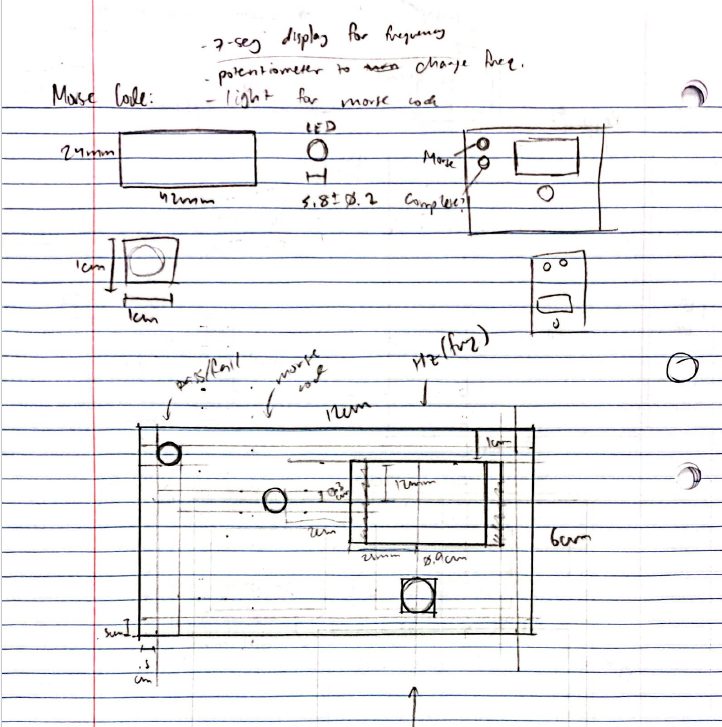 - 7-seg display for frequency
- potentiometer to change freq.
Morse Code: - light for morse code
LED
24mm
42mm
5.8±0.2
Morse
Complete?
1cm
1cm
pass/fail
morse code
Hz (freq)
12cm
1cm
12mm
2cm
21mm
0.9cm
6cm
.5cm
.5 cm